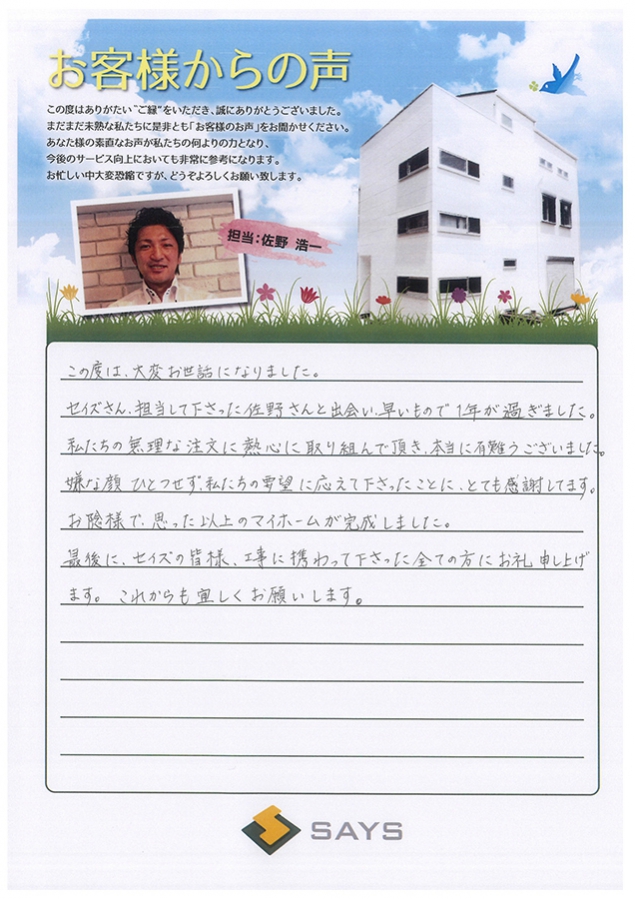 お客様からの声
この度はありがたい“ご縁”をいただき、誠にありがとうございました。
まだまだ未熟な私たちに是非とも「お客様のお声」をお聞かせください。
あなた様の素直なお声が私たちの何よりの力となり、
今後のサービス向上においても非常に参考になります。
お忙しい中大変恐縮ですが、どうぞよろしくお願い致します。
担当:佐野 浩一
この度は、大変お世話になりました。
セイズさん、担当して下さった佐野さんと出会い、早いもので1年が過ぎました。
私たちの無理な注文に熱心に取り組んで頂き、本当に有難うございました。
嫌な顔ひとつせず、私たちの要望に応えて下さったことに、とても感謝してます。
お陰様で、思った以上のマイホームが完成しました。
最後に、セイズの皆様、工事に携わって下さった全ての方にお礼申し上げ
ます。これからも宜しくお願いします。
SAYS